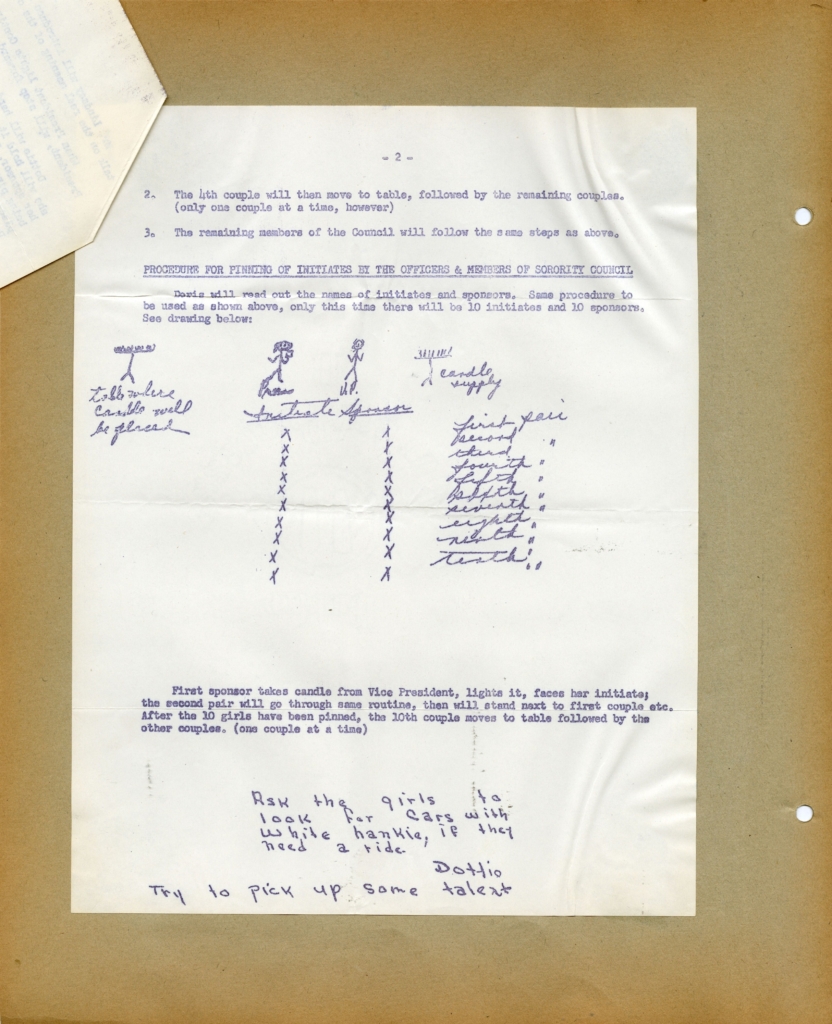 - 2 -
2. The 4th couple will then move to table, followed by the remaining couples.
(only one couple at a time, however)
3. The remaining members of the Council will follow the same steps as above.
PROCEDURE FOR PINNING OF INITIATES BY THE OFFICERS & MEMBERS OF SORORITY COUNCIL
Doris will read out the names of initiates and sponsors. Same procedure to
be used as shown above, only this time there will be 10 initiates and 10 sponsors.
See drawing below:
table where
candle will
be placed
Pres V.P.
candle
supply
Initiate Sponsor
X X first pair
X X second "
X X third
X X fourth "
X X fifth "
X X "
X X seventh "
X X eighth "
X X ninth "
X X tenth "
First sponsor takes candle from Vice President, lights it, faces her initiate;
the second pair will go through same routine, then will stand next to first couple etc.
After the 10 girls have been pinned, the 10th couple moves to table followed by the
other couples. (one couple at a time)
Ask the girls to
look for cars with
white hankie, if they
need a ride.
Dottie
Try to pick up some talent